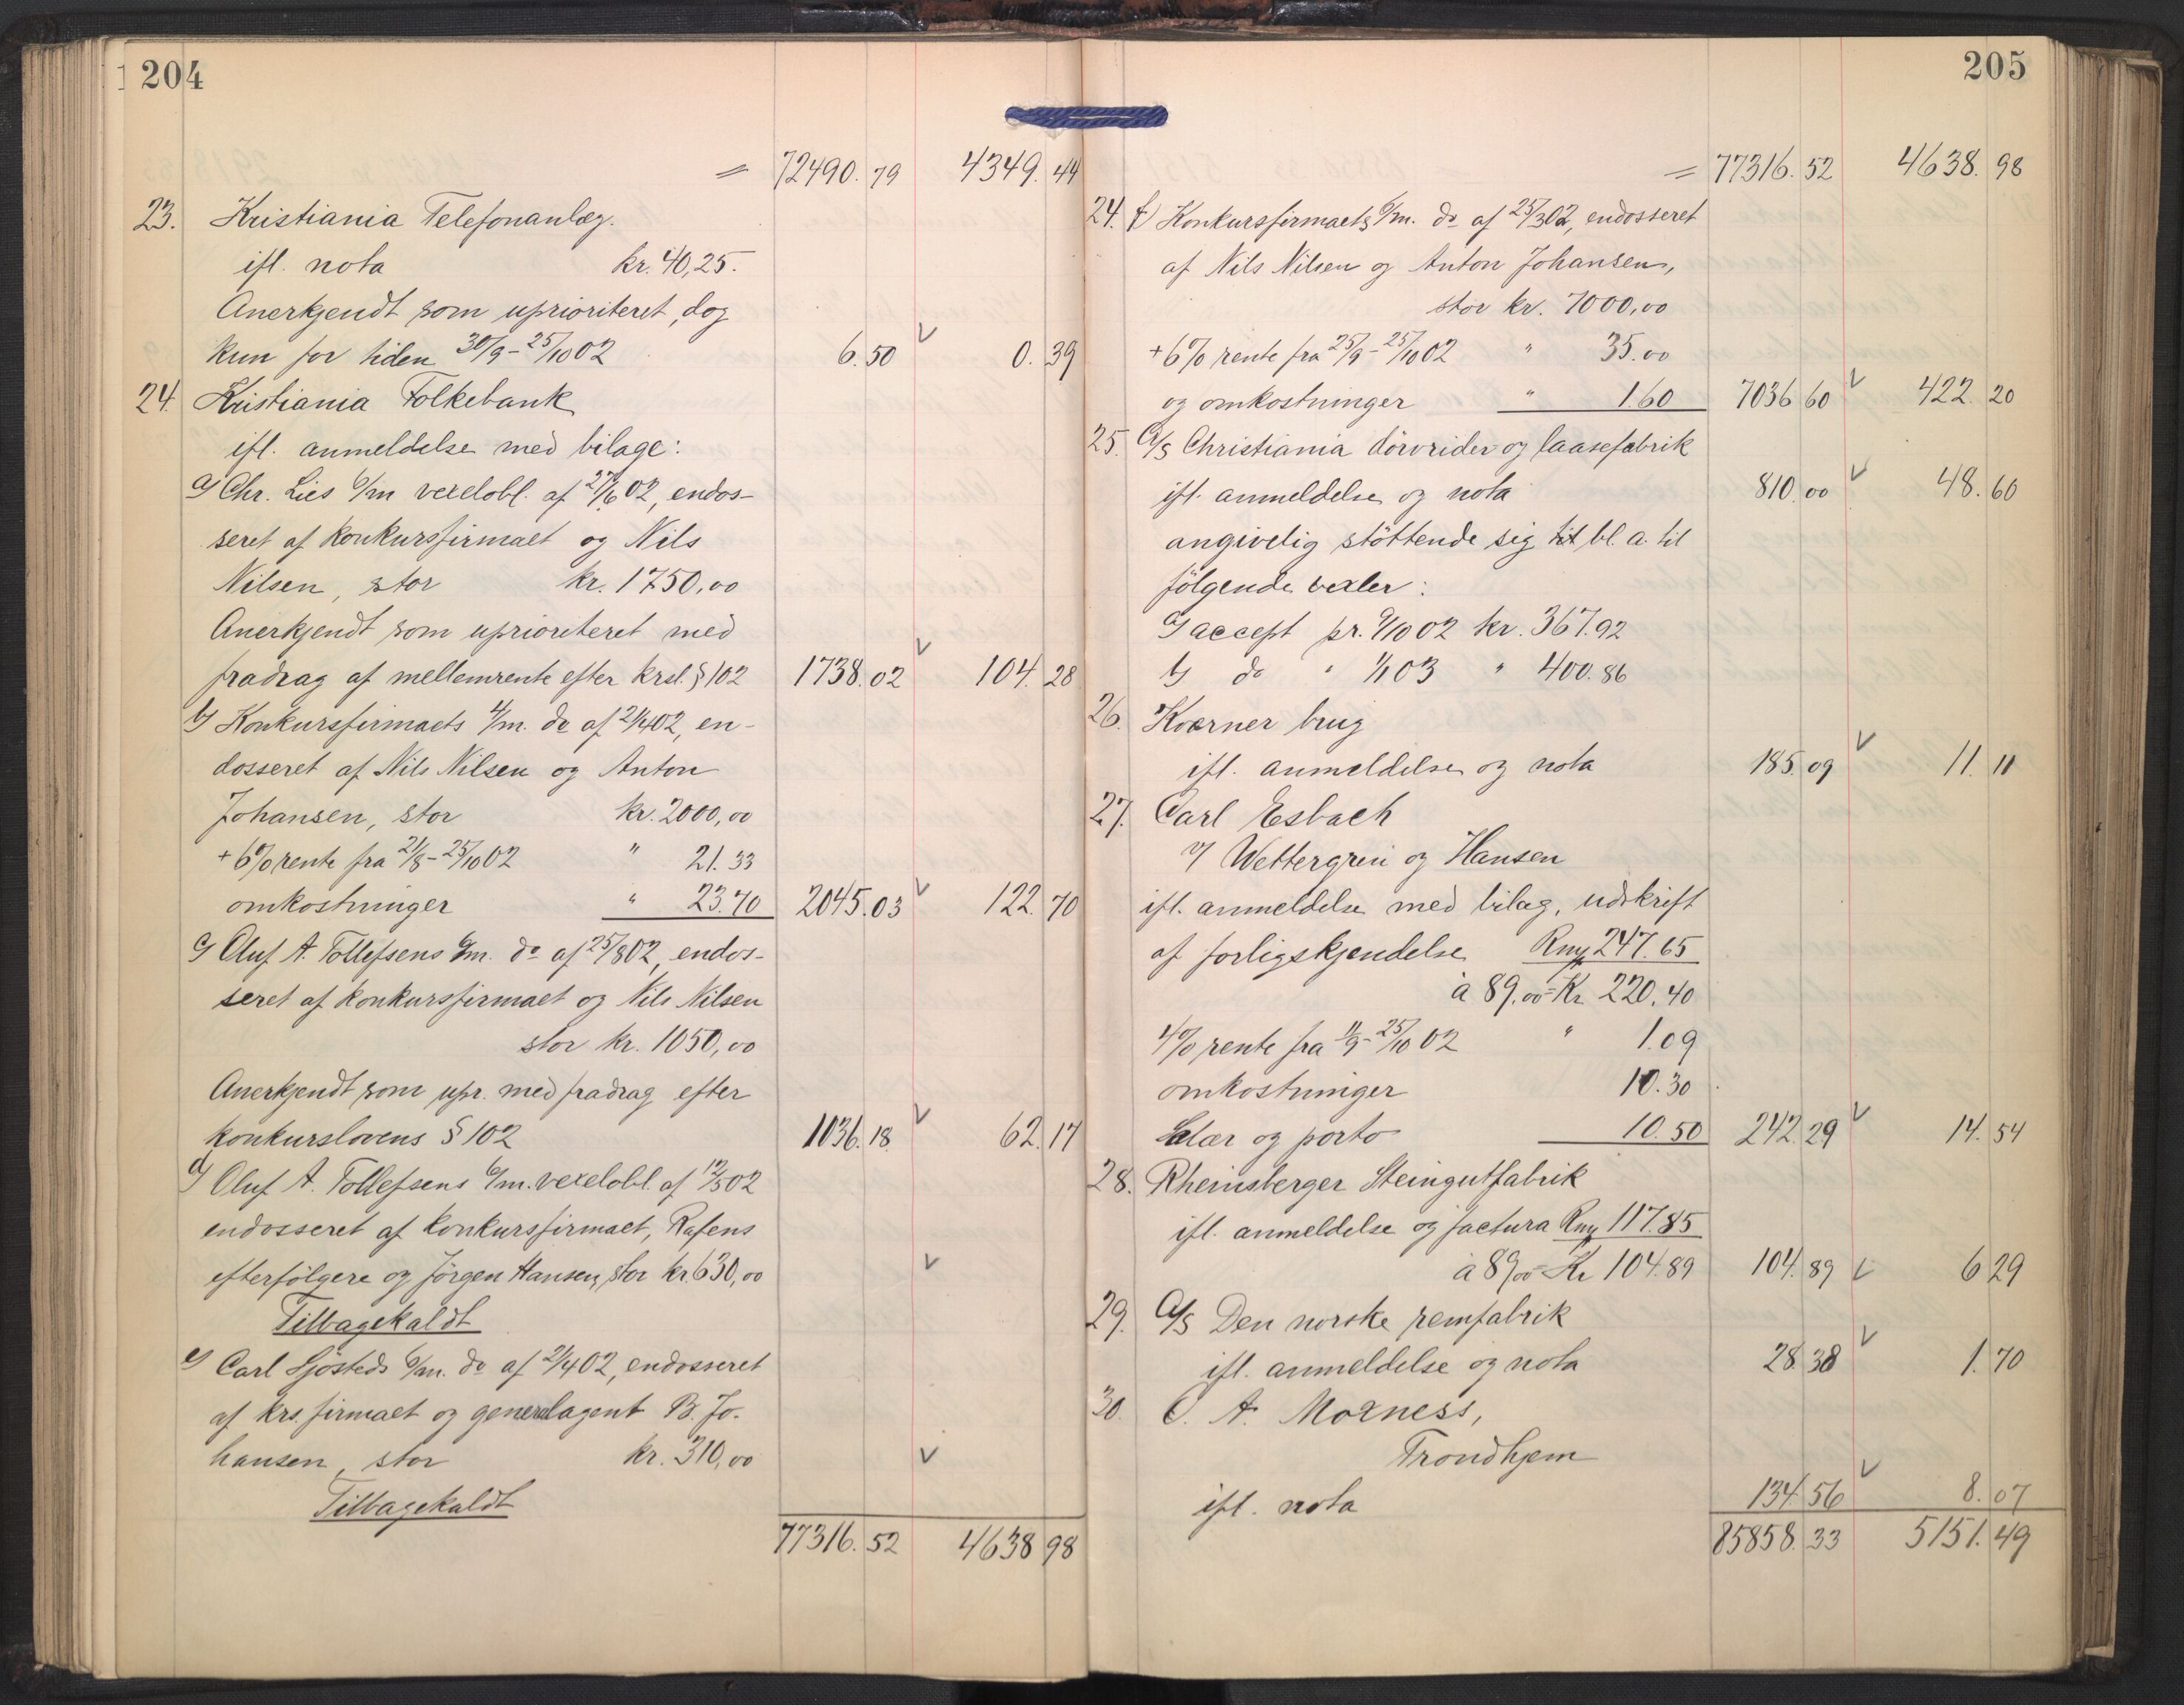 204
= 72490. 79 4349. 44
23. Kristiania Telefonanlæg.
ifl. nota kr. 40,25.
Anerkjendt som uprioriteret, dog
kun for tiden 30/9 - 25/10 02 6. 50 V 0. 39
24. Kristiania Folkebank
ifl. anmeldelse med bilage:
a) Chr. Lies 6/m vexelobl. af 27/6 02, endos-
seret af konkursfirmaet og Nils
Nilsen, stor kr. 1750,00
Anerkjendt som uprioriteret med
fradrag af mellemrente efter krsl. § 102 1738. 02 V 104. 28
b) Konkursfirmaets 4/m. do af 21/4 02, en-
dosseret af Nils Nilsen og Anton
Johansen, stor kr. 2000,00
+ 6% rente fra 21/8 - 25/10 02 " 21.33
omkostninger " 23.70 2045. 03 V 122. 70
c) Oluf A. Tollefsens 6/m. do af 25/8 02, endos-
seret af konkursfirmaet og Nils Nilsen
stor kr. 1050,00
Anerkjendt som upr. med fradrag efter
konkurslovens § 102 1036. 18. V 62. 17
d) Oluf A. Tollefsens 6/m. vexelobl. af 12/5 02
endosseret af konkursfirmaet, Rafens
efterfølgere og Jørgen Hansen, stor kr. 630,00 V
Tilbagekaldt
e) Carl Sjösteds 6/m. do af 21/4 02, endosseret
af krs. firmaet og generalagent B. Jo-
hansen, stor kr. 310,00 V
Tilbagekaldt
77316. 52 4638 98
205
= 77316. 52 4638. 98
24. f) Konkursfirmaets 6/m. do af 25/3 02, endosseret
af Nils Nilsen og Anton Johansen,
stor kr. 7000,00
+ 6% rente fra 25/9 - 25/10 02 " 35.00
og omkostninger " 1.60 7036 60 V 422. 20
25. A/S Christiania dörvrider og laasefabrik
ifl. anmeldelse og nota 810. 00 V 48. 60
angivelig støttende sig til bl. a. til
følgende vexler:
a) accept pr. 9/10 02 kr. 367.92
b) do " 1/1 03 " 400.86
26. Kværner brug
ifl. anmeldelse og nota 185. 09 V 11. 11
27. Carl Esbach
v/ Wettergren og Hansen
ifl. anmeldelse med bilag, udskrift
af forligskjendelse Rm 247.65
à 89.00 = Kr 220.40
4% rente fra 11/9 - 25/10 02 " 1.09
omkostninger 10.30
Salær og porto 10.50 242. 29 V 14. 54
28. Rheinsberger Steingutfabrik
ifl. anmeldelse og factura Rm 117.85
à 89.00 = Kr 104.89 104. 89 V 6 29
29. A/S Den norske remfabrik
ifl. anmeldelse og nota 28. 38 V 1. 70
30. C. A. Moxness,
Trondhjem
ifl. nota 134 56 V 8. 07
85858. 33 5151. 49